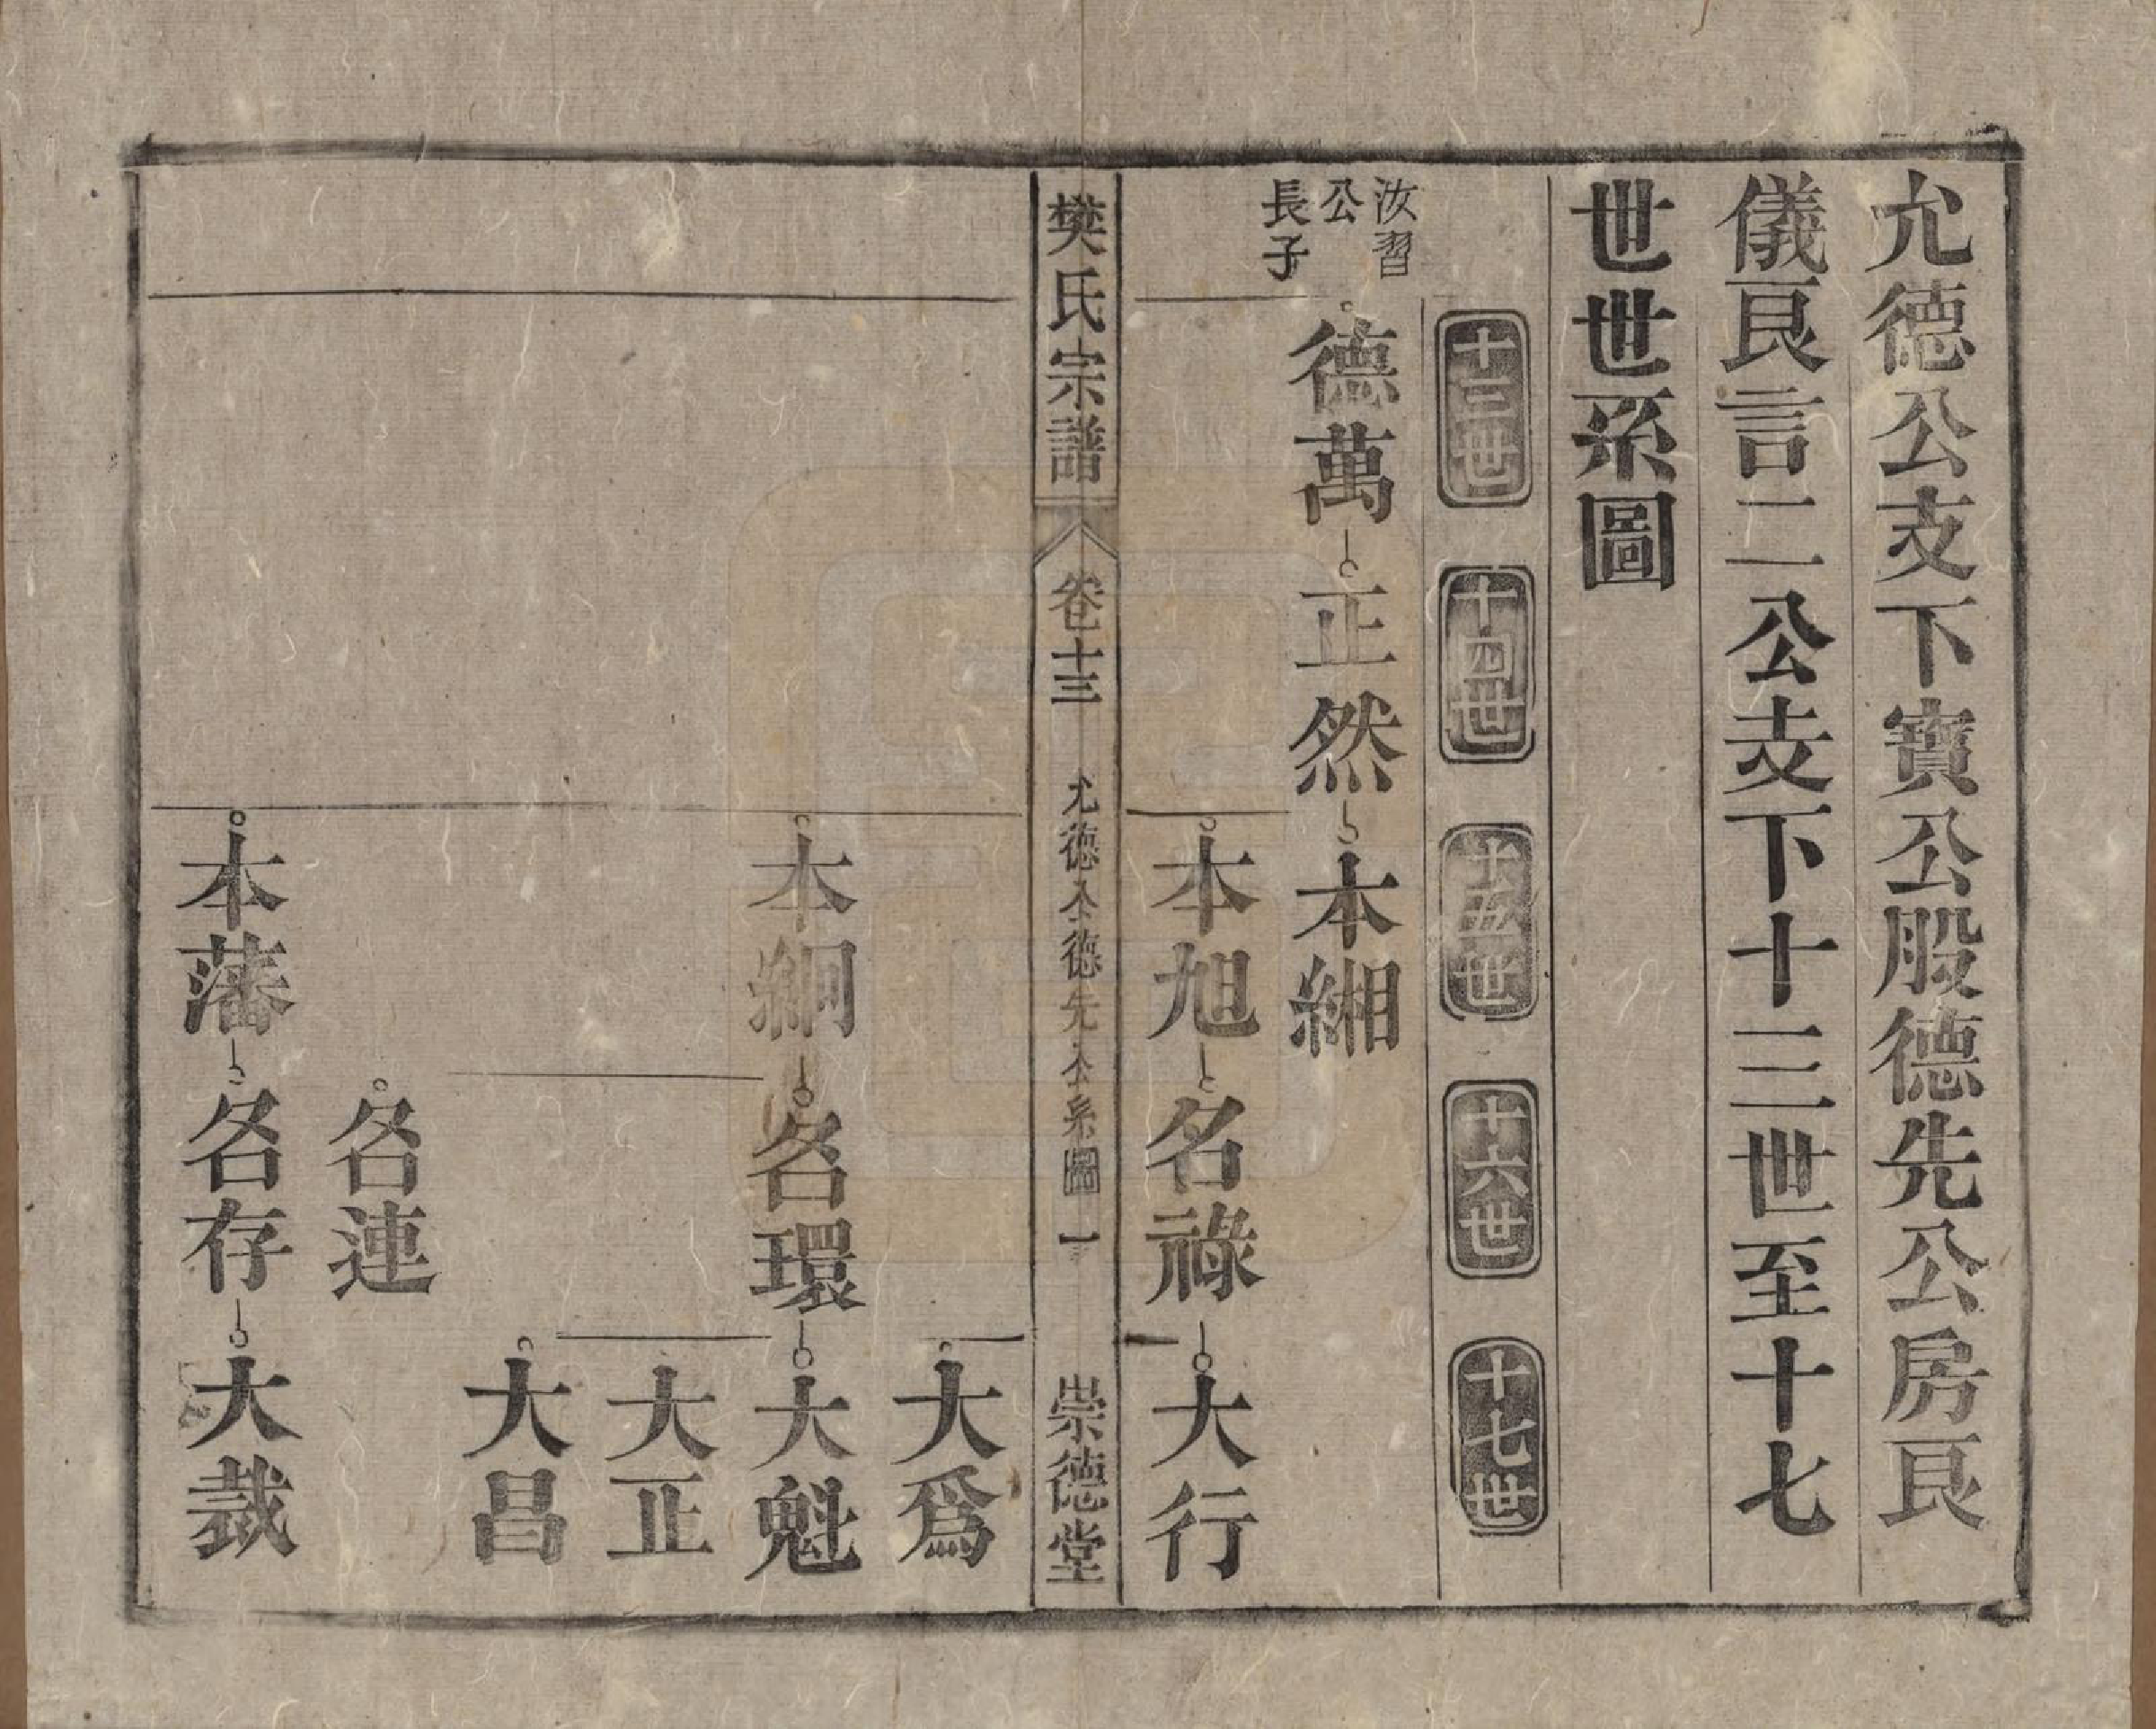 允德公支下寶公股德先公房艮
儀艮言二公支下十三世至十七
世世系圖
十三世
十四世
十五世
十六世
十七世
汝習
公
長子
德萬
正然
本緗
本旭
名祿
大行
樊氏宗譜
卷十三
允德公德先公系圖
一
崇德堂
大爲
本絅
名環
大魁
大正
大昌
名連
本藩
名存
大裁